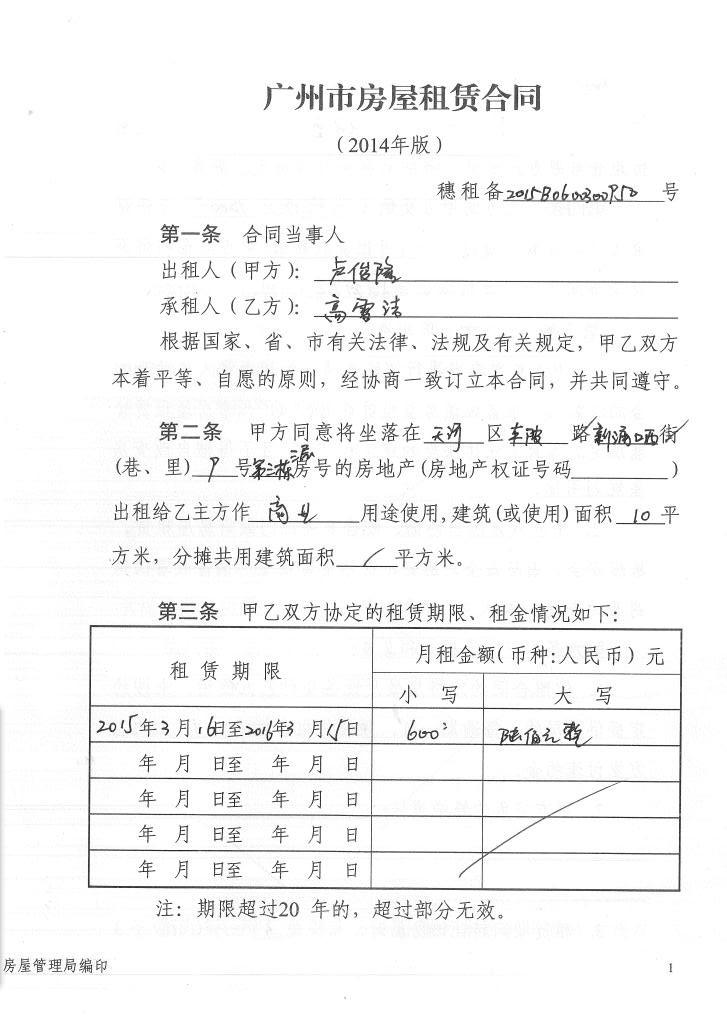 广州市房屋租赁合同
（2014年版）
穗租备2015B0600300950号
第一条 合同当事人
出租人（甲方）：卢俊隆
承租人（乙方）：高雪洁
根据国家、省、市有关法律、法规及有关规定，甲乙双方
本着平等、自愿的原则，经协商一致订立本合同，并共同遵守。
第二条 甲方同意将坐落在天河区车陂路新涌口西街
(巷、里)9号第三栋三层房号的房地产(房地产权证号码 )
出租给乙主方作商业用途使用,建筑(或使用)面积10平
方米，分摊共用建筑面积/平方米。
第三条 甲乙双方协定的租赁期限、租金情况如下：
租赁期限 月租金额(币种:人民币)元
小写 大写
2015年3月16日至2016年3月15日 600 陆佰元整
年 月 日至 年 月 日
年 月 日至 年 月 日
年 月 日至 年 月 日
年 月 日至 年 月 日
注：期限超过20 年的，超过部分无效。
房屋管理局编印 1